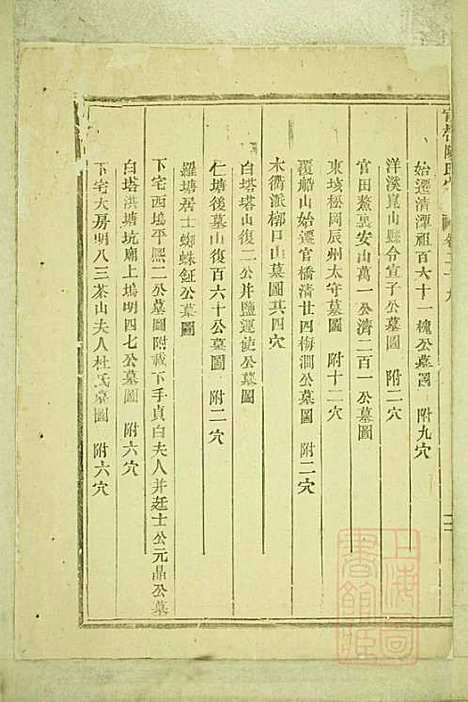 始遷清潭祖百六十一槐公墓圖 附九穴
洋溪崑山縣令宣子公墓圖 附二穴
官田鰲裏安山萬一公濟二百一公墓圖
東垓松岡辰州太守墓圖 附十二穴
覆船山始遷官橋清廿四梅澗公墓圖 附二穴
木衢派廓口山墓圖共四穴
白塔塔山復二公并鹽運使公墓圖
仁塘後墓山復百六十公墓圖 附二穴
羅塘居士蜘蛛鉦公墓圖
下宅西塢平熙二公墓圖附載下手貞白夫人并廷士公元晶公墓
白塔洪塘坑廟上塢明四七公墓圖 附六穴
下宅大房明八三茶山夫人杜氏墓圖 附六穴
上海圖書館藏